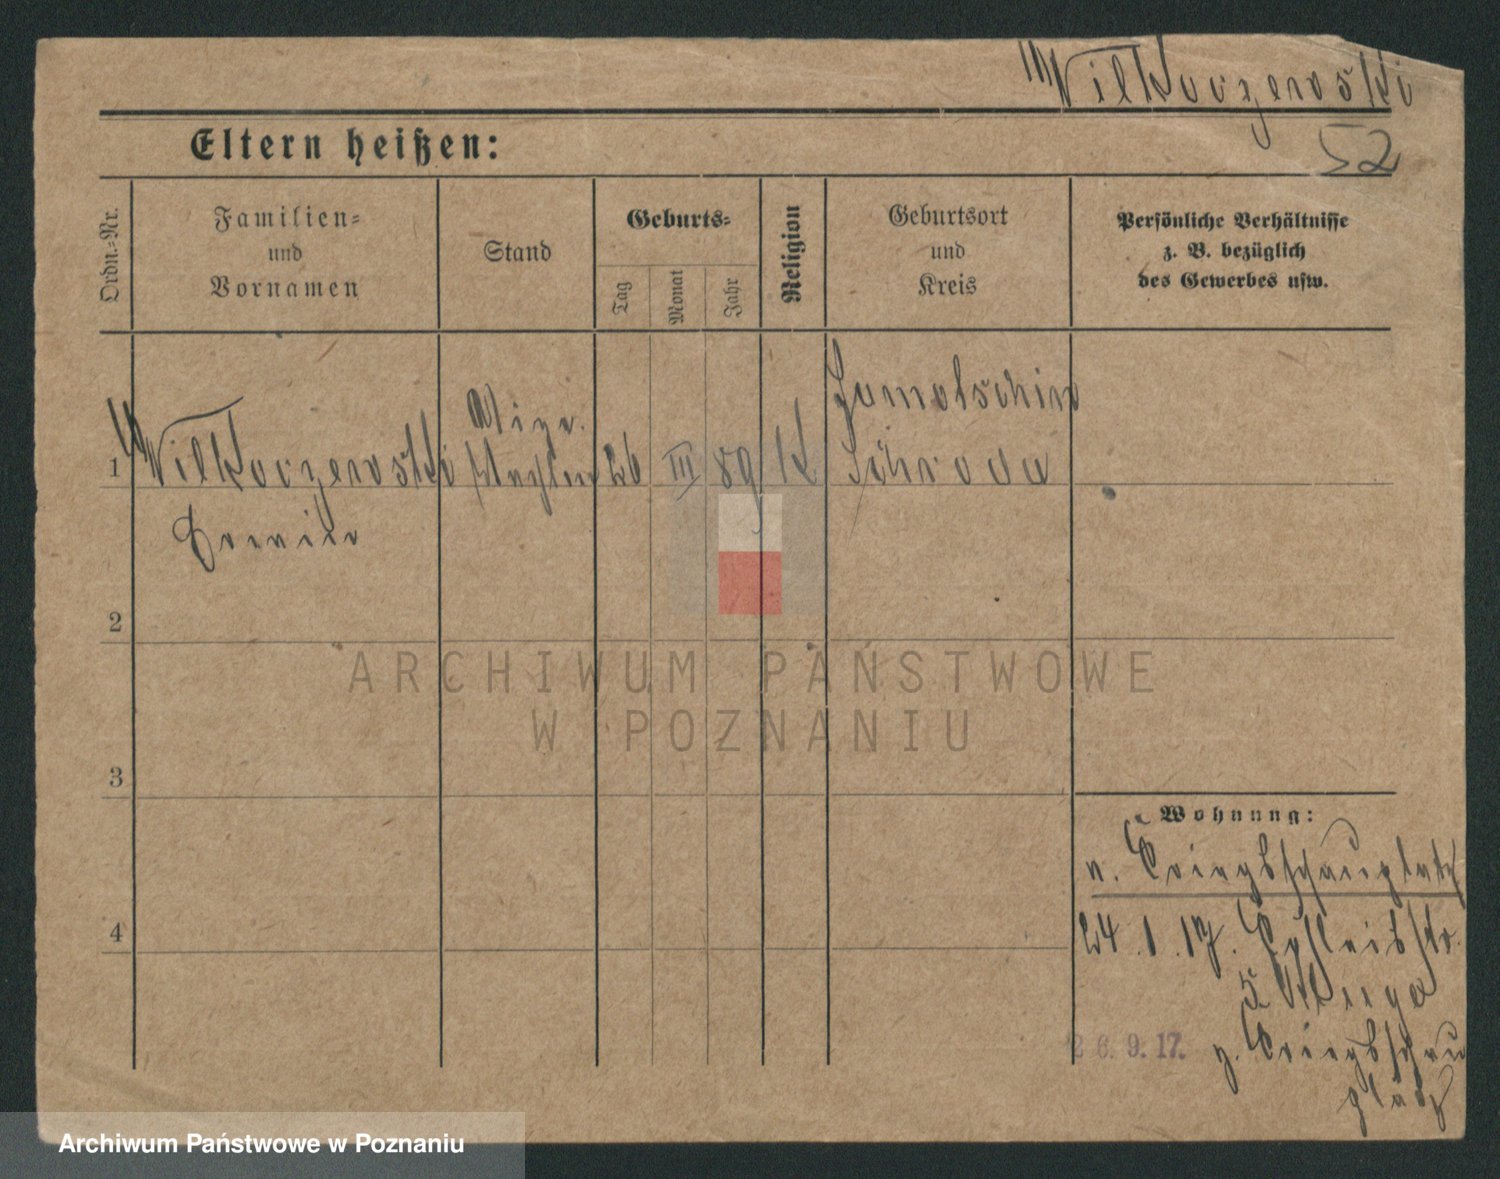 Wilkoszewski
52
Eltern heißen:
Ordn.-Nr.
Familien-
und
Vornamen
Stand
Geburts-
Tag
Monat
Jahr
Religion
Geburtsort
und
Kreis
Persönliche Verhältnisse
z. B. bezüglich
des Gewerbes usw.
1
Vize
26 III 89 K
Schroda
2
3
4
ARCHIWUM PAŃSTWOWE
W POZNANIU
Wohnung:
v. Kriegsschauplatz
24.1.17.
26.9.17. z. Kriegsschau
platz
Archiwum Państwowe w Poznaniu